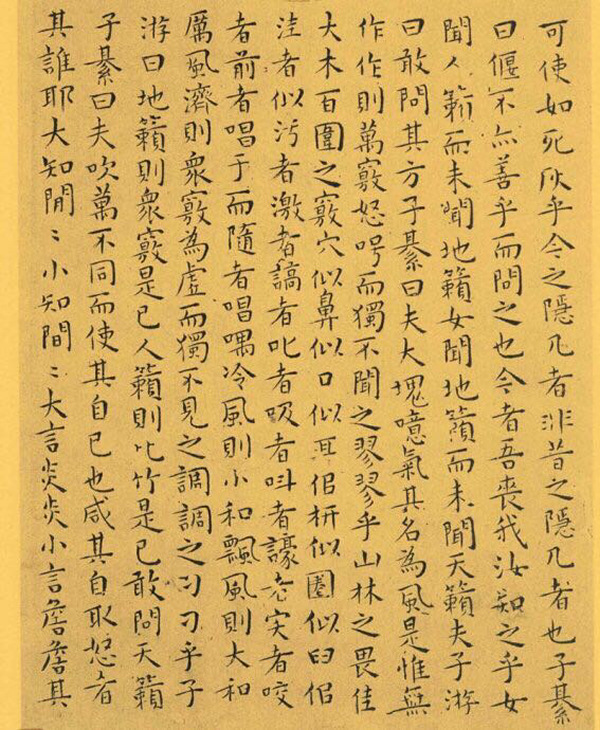 可使如死灰乎今之隱几者非昔之隱几者也子綦
曰偃不亦善乎而問之也今者吾喪我汝知之乎女
聞人籟而未聞地籟女聞地籟而未聞天籟夫子游
曰敢問其方子綦曰夫大塊噫氣其名為風是惟無
作作則萬竅怒呺而獨不聞之翏翏乎山林之畏佳
大木百圍之竅穴似鼻似口似耳佀枅似圈似臼佀
洼者似污者激者謞者叱者吸者叫者譹者実者咬
者前者唱于而隨者唱喁冷風則小和飄風則大和
厲風濟則衆竅為虛而獨不見之調調之刁刁乎子
游曰地籟則衆竅是已人籟則比竹是已敢問天籟
子綦曰夫吹萬不同而使其自已也咸其自取怒者
其誰耶大知閒〻小知間〻大言炎炎小言詹詹其